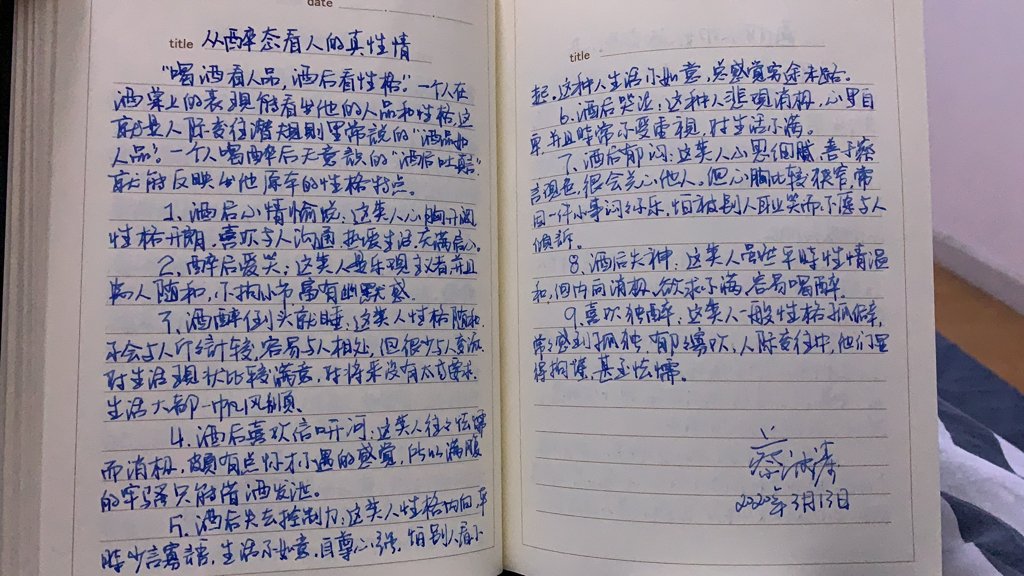 date
title 从醉态看人的真性情
“喝酒看人品,酒后看性格”一个人在
酒桌上的表现能看出他的人品和性格,这
就是人际交往潜规则里常说的“酒品如
人品”。一个人喝醉后无意识的“酒后吐真言”
就能反映出他原本的性格特点。
1、酒后心情愉悦:这类人心胸开阔
性格开朗,喜欢与人沟通,热爱生活,充满信心。
2、醉后爱笑:这类人是乐观主义者并且
为人随和,不拘小节富有幽默感.
3、酒醉倒头就睡:这类人性格随和
不会与人斤斤计较,容易与人相处,但很少与人交流
对生活现状比较满意,对将来没有太高要求.
生活大都一帆风顺。
4、酒后喜欢信口开河:这类人往往怯懦
而消极,颇有点怀才不遇的感觉,所以满腹
的牢骚只能借酒发泄。
5、酒后失去控制力:这类人性格内向,平
时少言寡语,生活不如意,自尊心强,怕别人看不
title
起,这种人生活不如意,总感觉穷途末路。
6、酒后哭泣:这种人悲观消极,心里自
卑并且时常不受重视,对生活不满。
7、酒后郁闷:这类人心思细腻,善于察
言观色,很会关心他人,但心胸比较狭窄,常
因一件小事闷闷不乐,怕被别人耻笑而不愿与人
倾诉。
8、酒后失神:这类人虽然平时性情温
和,但内向消极、欲求不满,容易喝醉。
9、喜欢独醉:这类人一般性格孤僻,
常常感到孤独、郁郁寡欢,人际交往中,他们显
得拘谨,甚至怯懦。
2020年3月13日